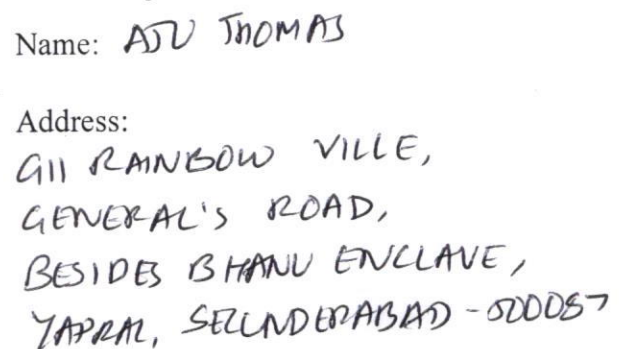 Name: AJU THOMAS
Address:
G11 RAINBOW VILLE,
GENERAL'S ROAD,
BESIDES BHANU ENCLAVE,
YAPRAL, SECUNDERABAD - 500087